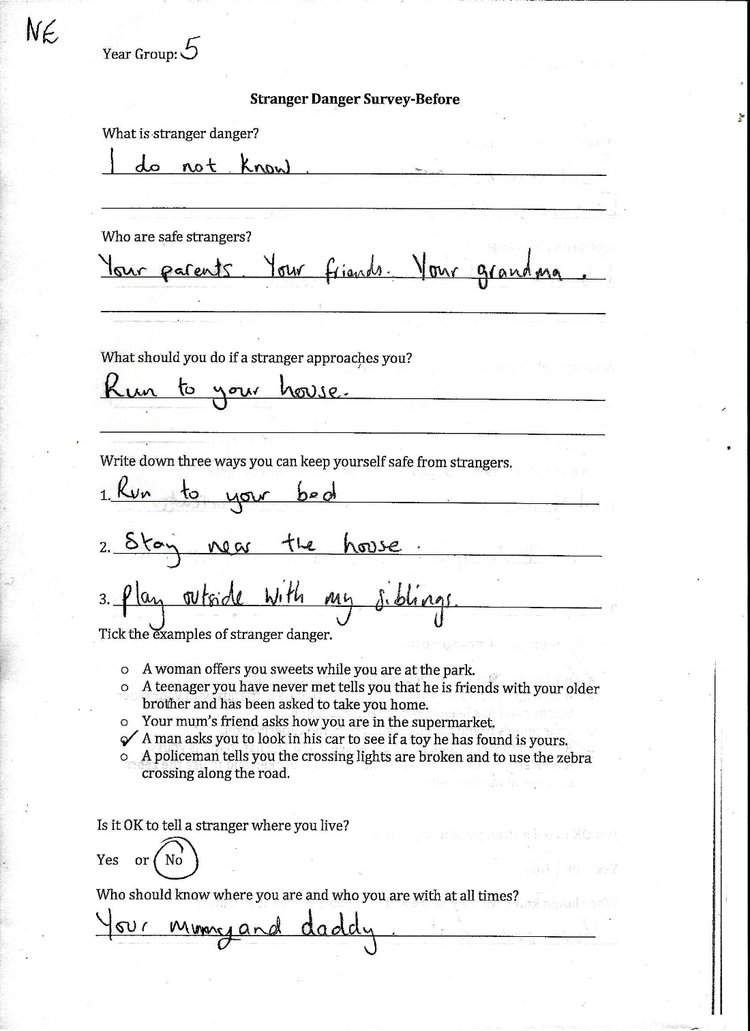 NE
Year Group: 5
Stranger Danger Survey-Before
What is stranger danger?
I do not know.
Who are safe strangers?
Your parents. Your friends. Your grandma.
What should you do if a stranger approaches you?
Run to your house.
Write down three ways you can keep yourself safe from strangers.
1. Run to your bed
2. Stay near the house.
3. Play outside with my siblings.
Tick the examples of stranger danger.
o A woman offers you sweets while you are at the park.
o A teenager you have never met tells you that he is friends with your older
brother and has been asked to take you home.
o Your mum's friend asks how you are in the supermarket.
o ✓ A man asks you to look in his car to see if a toy he has found is yours.
o A policeman tells you the crossing lights are broken and to use the zebra
crossing along the road.
Is it OK to tell a stranger where you live?
Yes or No
Who should know where you are and who you are with at all times?
Your mummy and daddy.